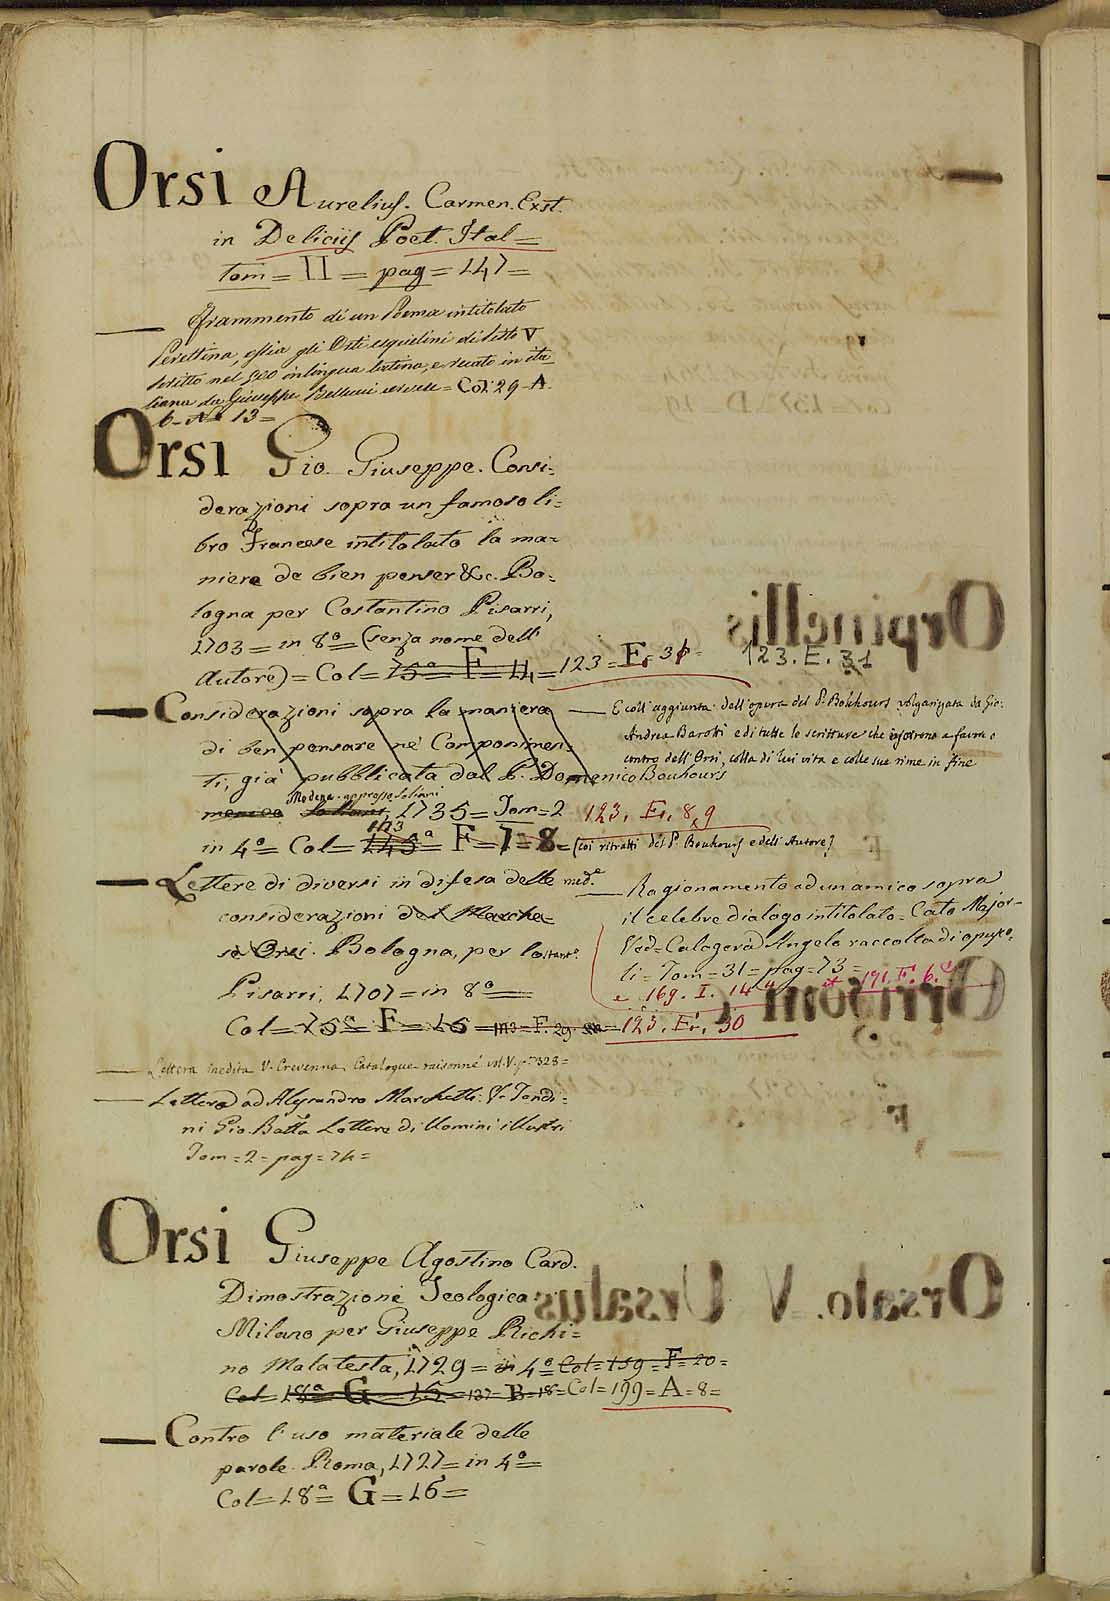 Orsi Aurelius. Carmen. Exst.
in Deliciis Poet. Ital=
tom= II = pag= 147=
— Frammento di un Poema intitolato
Perettina, ossia gli Orti esquilini di Sisto V
scritto nel in lingua latina, e recato in ita
liano da Giuseppe Bellucci = Col. 29-A-
6-N° 13=
Orsi Gio. Giuseppe. Consi=
derazioni sopra un famoso li=
bro Francese intitolato la ma=
niere de bien penser &c. Bo=
logna per Costantino Pisarri,
1703= in 8°= (senza nome dell'
Autore)= Col= 75ª F= 11= 123= E. 31= 123. E. 31
— Considerazioni sopra la maniera
di ben pensare ne' Componimen=
ti, già pubblicata dal P. Domenico Bouhours
Modena. appresso Soliani
Soliani, 1735= Tom= 2 123. E. 8, 9
173
in 4°= Col= 145ª F= 7= 8= (coi ritratti del P. Bouhours e dell'Autore)
— E coll'aggiunta dell'opera del P. Bohhours volgarizzata da Gio:
Andrea Barotti e di tutte le scritture che in favore o
contro dell'Orsi, colla di lui vita e colle sue rime in fine
— Lettere di diversi in difesa delle med.e
considerazioni del Marche=
se Orsi. Bologna, per Costant°
Pisarri, 1707= in 8°=
Col= 75ª F= 15 = 113= F. 29 = 123. E. 30
— Ragionamento ad un amico sopra
il celebre dialogo intitolato= Cato Major=
Ved= Calogerà Angelo raccolta di opusco=
li= Tom= 31= pag= 73=
e 169. I. 14 et 171. F. 6.
— Lettera inedita V. Crevenna Catalogue raisonné vol. V. p. 323=
— Lettera ad Alessandro Marchetti: V. Fondi=
ni Gio. Batta Lettere di Uomini illustri
Tom= 2= pag= 74=
Orsi Giuseppe Agostino Card.
Dimostrazione Teologica
Milano per Giuseppe Richi=
no Malatesta, 1729= in 4°= Col= 159= F= 20=
Col= 18ª G= 15= 137= B= 18= Col= 199= A= 8=
— Contro l'uso materiale delle
parole. Roma, 1727= in 4°=
Col= 18ª G= 16=